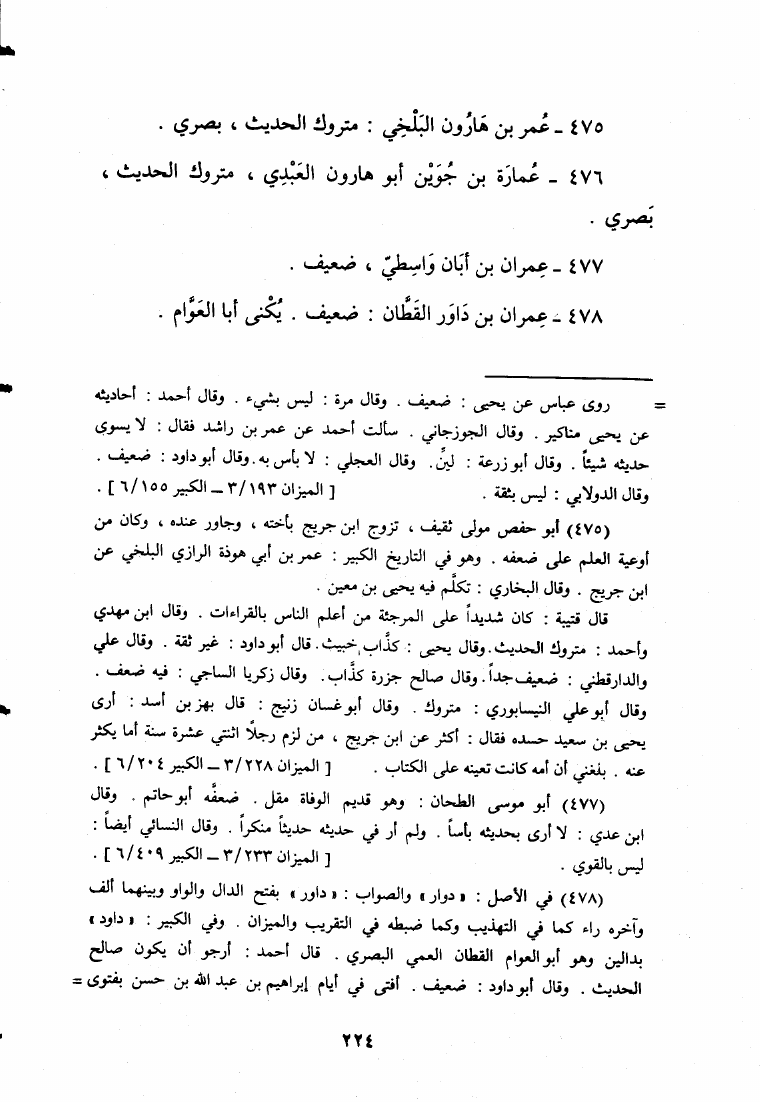 ٤٧٥ ـ عُمر بن هَارُون البَلْخِي : متروك الحديث ، بصري .
٤٧٦ ـ عُمارَة بن جُوَيْن أبو هارون العَبْدِي ، متروك الحديث ،
بَصري .
٤٧٧ ـ عِمران بن أبَان وَاسِطيّ ، ضعيف .
٤٧٨ ـ عِمران بن دَاوَر القَطَّان : ضعيف . يُكْنى أبا العَوَّام .
= روى عباس عن يحيى : ضعيف . وقال مرة : ليس بشيء . وقال أحمد : أحاديثه
عن يحيى مناكير . وقال الجوزجاني . سألت أحمد عن عمر بن راشد فقال : لا يسوى
حديثه شيئاً . وقال أبو زرعة : لينّ. وقال العجلي : لا بأس به. وقال أبو داود : ضعيف .
وقال الدولابي : ليس بثقة . [ الميزان ٣/١٩٣ ــ الكبير ٦/١٥٥ ] .
(٤٧٥) أبو حفص مولى ثقيف ، تزوج ابن جريج بأخته ، وجاور عنده ، وكان من
أوعية العلم على ضعفه . وهو في التاريخ الكبير : عمر بن أبي هوذة الرازي البلخي عن
ابن جريج . وقال البخاري : تكلَّم فيه يحيى بن معين .
قال قتيبة : كان شديداً على المرجئة من أعلم الناس بالقراءات . وقال ابن مهدي
وأحمد : متروك الحديث. وقال يحيى : كذَّاب خبيث. قال أبو داود : غير ثقة . وقال علي
والدارقطني : ضعيف جداً. وقال صالح جزرة كذَّاب. وقال زكريا الساجي : فيه ضعف .
وقال أبو علي النيسابوري : متروك . وقال أبو غسان زنيج : قال بهز بن أسد : أرى
يحيى بن سعيد حسده فقال : أكثر عن ابن جريج ، من لزم رجلاً اثنتي عشرة سنة أما يكثر
عنه . بلغني أن أمه كانت تعينه على الكتاب . [ الميزان ٣/٢٢٨ ــ الكبير ٦/٢٠٤ ] .
(٤٧٧) أبو موسى الطحان : وهو قديم الوفاة مقل . ضعفَّه أبو حاتم . وقال
ابن عدي : لا أرى بحديثه بأساً . ولم أر في حديثه حديثاً منكراً . وقال النسائي أيضاً :
ليس بالقوي . [ الميزان ٣/٢٣٣ ــ الكبير ٦/٤٠٩ ] .
(٤٧٨) في الأصل : « دوار » والصواب : « داور » بفتح الدال والواو وبينهما ألف
وآخره راء كما في التهذيب وكما ضبطه في التقريب والميزان . وفي الكبير : « داود »
بدالين وهو أبو العوام القطان العمي البصري . قال أحمد : أرجو أن يكون صالح
الحديث . وقال أبو داود : ضعيف . أفتى في أيام إبراهيم بن عبد الله بن حسن بفتوى =
٢٢٤